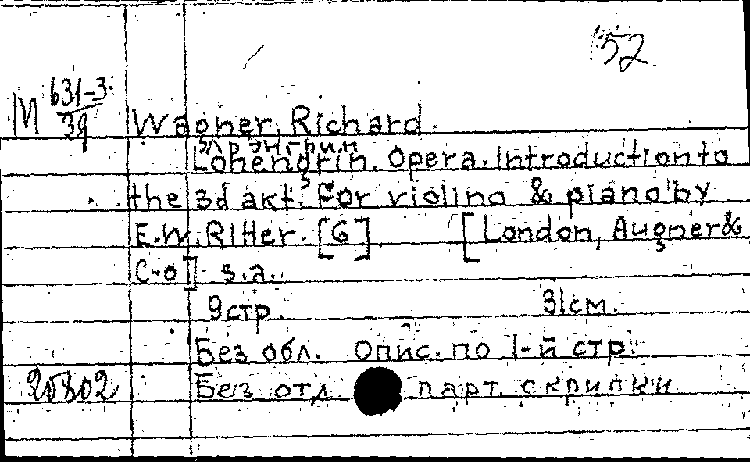 52
М 631-3
39
Wagner, Richard.
Лоэнгрин
Lohengrin. Opera. Introduction to
the 3d akt. For violino & piano by
E.W. Ritter. [G] [London, Augner &
C-o] s.a.
9 стр. 31 см.
Без обл. Опис. по 1-й стр.
20802 Без отд. парт. скрипки